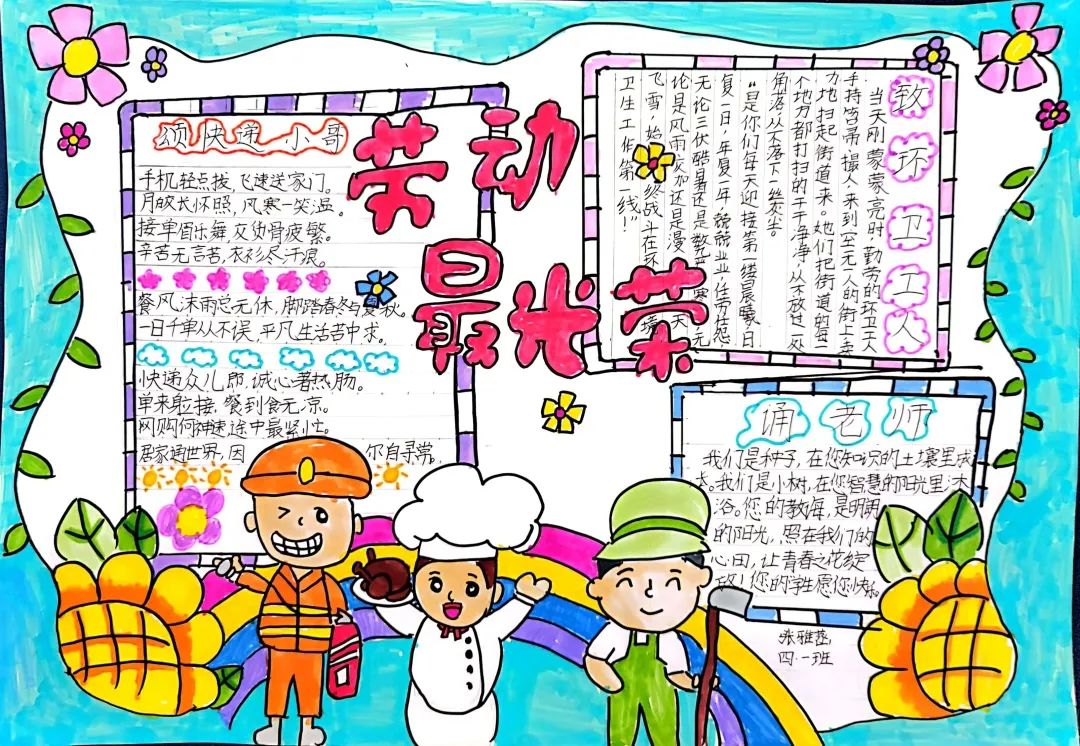 劳动
最光荣
颂快递小哥
手机轻点拔,飞速送家门。
月放长怀照,风寒一笑温。
接单佰乐舞,交货骨疲繁。
辛苦无言苦,衣衫尽汗痕。
餐风沫雨总无休,脚踏春冬与夏秋。
一日千单从不误,平凡生活苦中求。
快递众儿郎,诚心著热肠。
单来躬接,餐到食无凉。
网购何神速途中最紧忙。
居家通世界,因
尔自寻常。
致环卫工人
当天刚蒙蒙亮时,勤劳的环卫工人
手持笤帚撮人来到空无一人的街上卖
力地扫起街道来。她们把街道的每一
个地方都打扫的干干净净,从不放过一处
角落,从不落下一丝灰尘。
“是你们每天迎接第一缕晨曦,日
复一日,年复一年,兢兢业业,任劳任怨
无论三伏酷暑还是数
寒
无
论是风雨交加还是漫
天
飞雪,始
终战斗在环
境
卫生工作第一线!”
诵老师
我们是种子,在您知识的土壤里成
长。我们是小树,在您智慧的阳光里沐
浴。您的教诲,是明朗
的阳光,照在我们的
心田,让青春之花绽
放!您的学生愿您快乐
张雅
四.一班